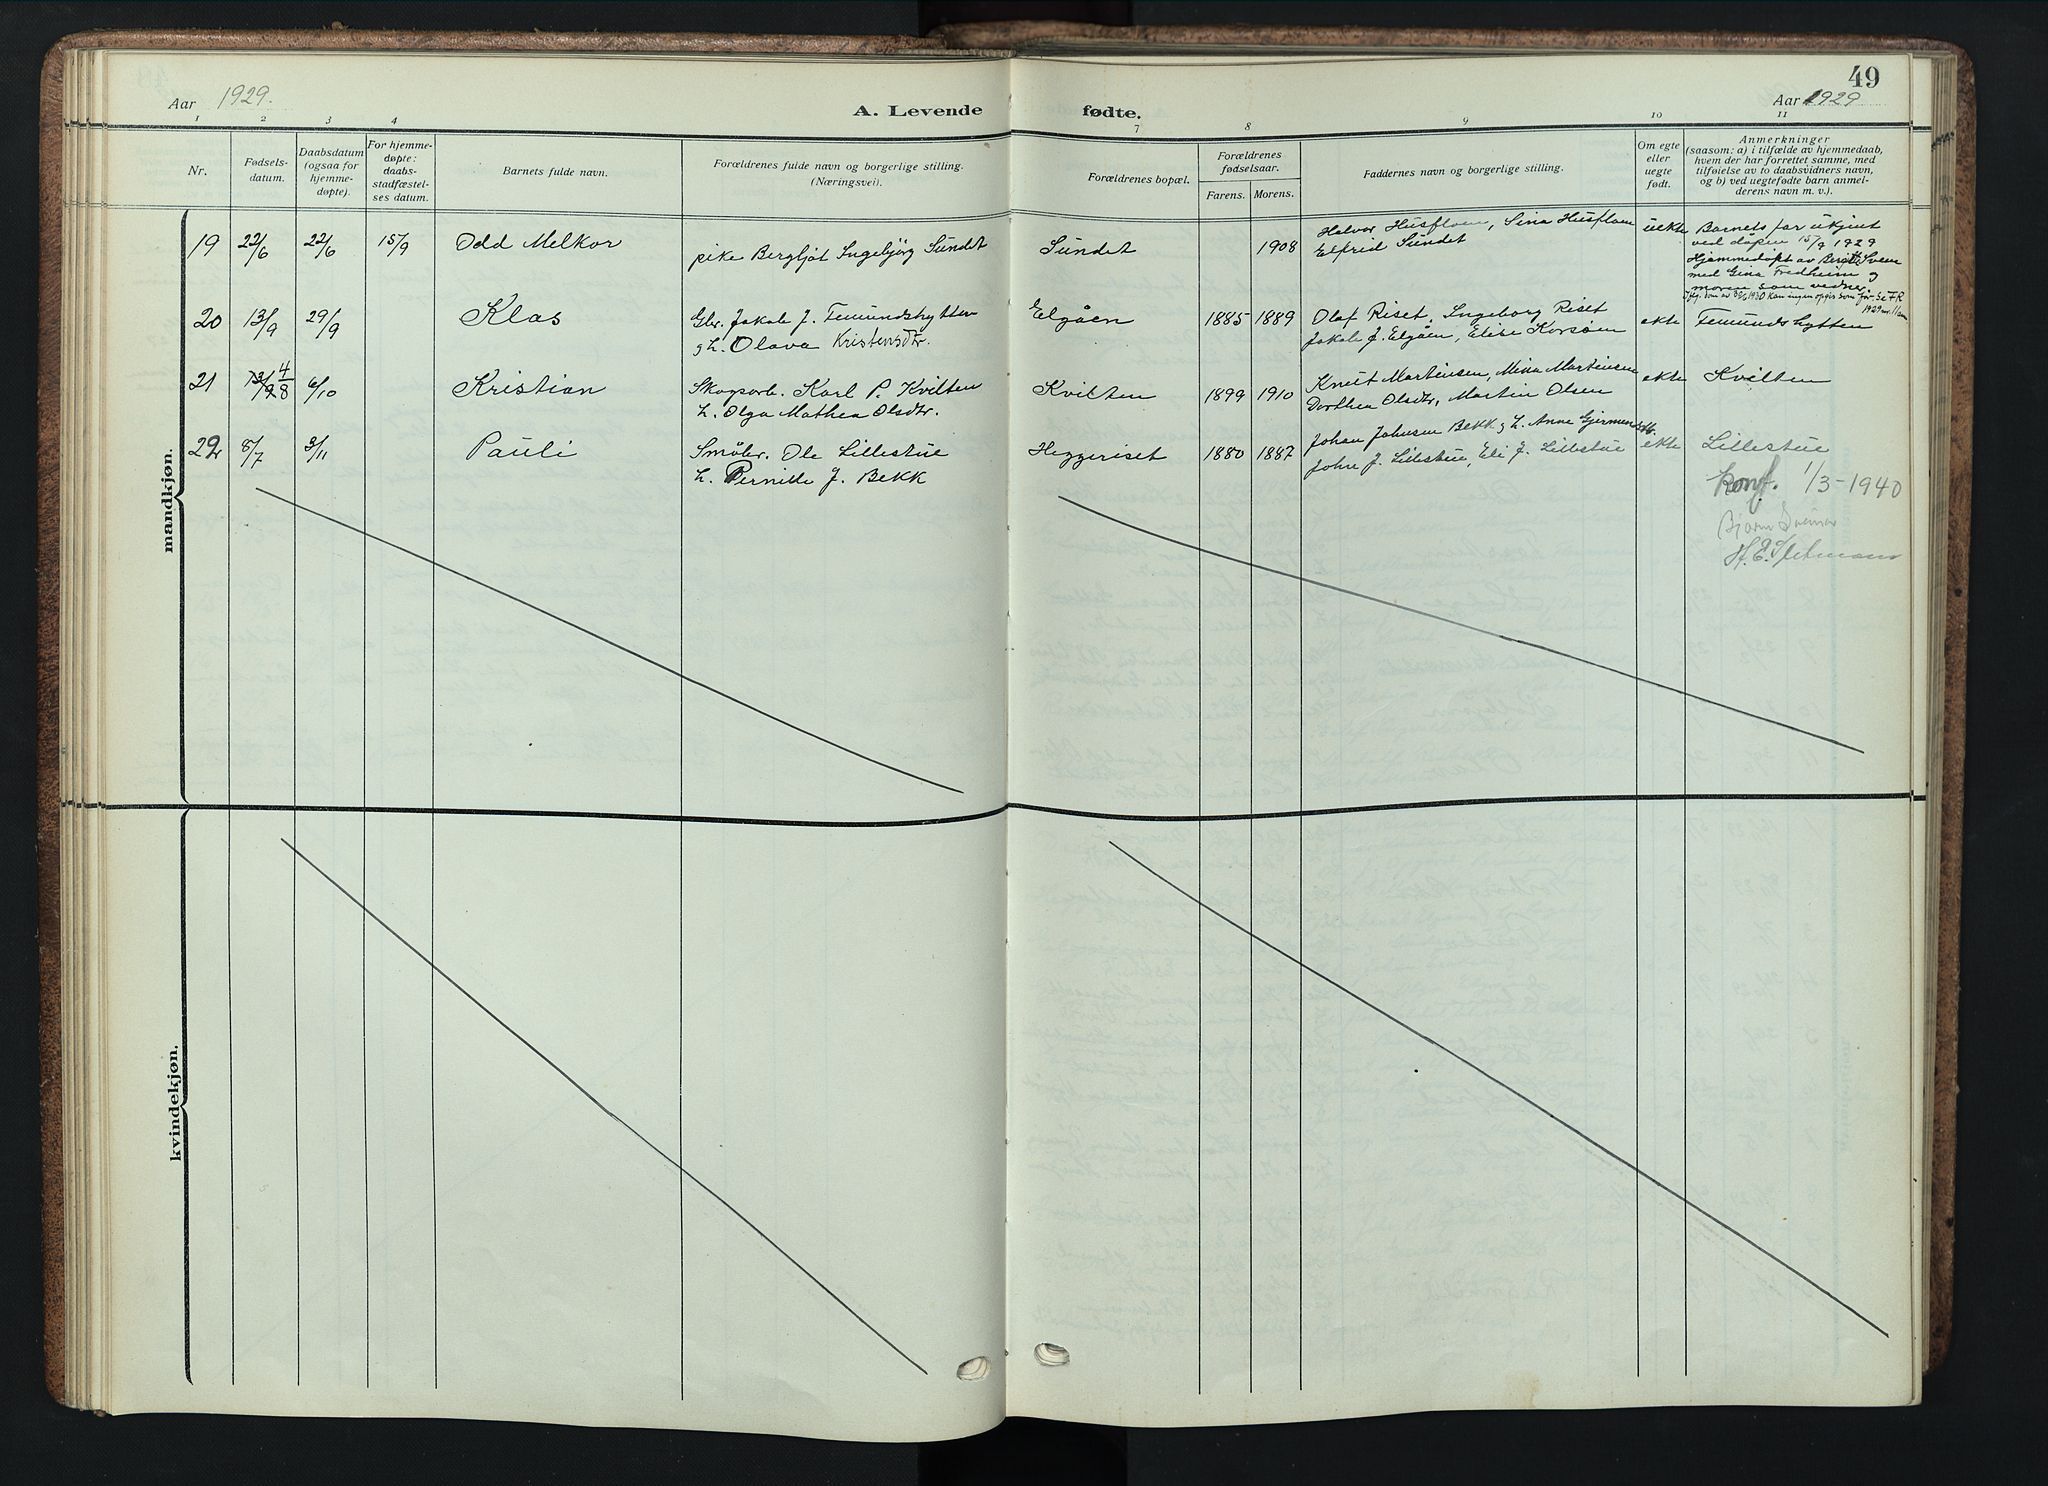 49
Aar 1929.
A. Levende fødte.
Aar 1929
1 2 3 4 7 8 9 10 11
Nr.
Fødsels-
datum.
Daabsdatum
(ogsaa for
hjemme-
døpte).
For hjemme-
døpte:
daabs-
stadfæstel-
ses datum.
Barnets fulde navn.
Forældrenes fulde navn og borgerlige stilling.
(Næringsvei).
Forældrenes bopæl.
Forældrenes
fødselsaar.
Farens. Morens.
Faddernes navn og borgerlige stilling.
Om egte
eller
uegte
født.
Anmerkninger
(saasom: a) i tilfælde av hjemmedaab,
hvem der har forrettet samme, med
tilføielse av to daabsvidners navn,
og b) ved uegtefødte barn anmel-
derens navn m. v.).
mandkjøn.
19 22/6 22/6 15/9 Odd Melkor
pike Bergljot Ingebjørg Sundet
Sundet 1908
Halvor Husfloen, Sina Husfloen
Elfrid Sundet
uekte
Barnets far ukjent
ved dåpen 15/9 1929
Hjemmedøpt av Berit Sveen
med Gina Fredheim og
moren som vidner
20 13/9 29/9 Klas
Gbr. Jakob J. Femundshytten
og h. Olava Kristensdtr.
Elgåen 1885 1889
Olaf Riset, Ingeborg Riset
Jakob J. Elgåen, Elise Korsøen
ekte Femundshytten
21 13/9 4/8 6/10 Kristian
Skogsarb. Karl P. Kvilten
h. Olga Mathea Olsdtr.
Kvilten 1899 1910
Knut Martinsen, Mina Martinsen
Dorthea Olsdtr, Martin Olsen
ekte Kvilten
22 8/7 3/11 Pauli
Småbr. Ole Lillestue
h. Pernille J. Bekk
Heggeriset 1880 1887
Johan Johnsen Bekk og h. Anne Gjermundsdtr.
John J. Lillestue, Eli J. Lillestue
ekte Lillestue
konf. 1/3-1940
kvindekjøn.